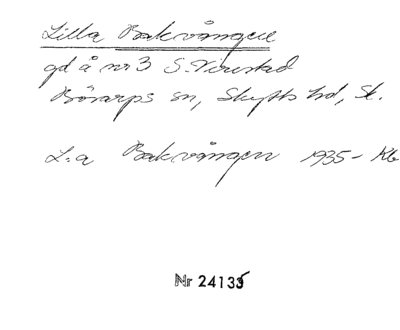 Lilla Bakvången
gd å nr 3 S. Virestad
Bösarps sn, Skytts hd, Sk.
L:a Bakvången 1935 - Kb
Nr 24135